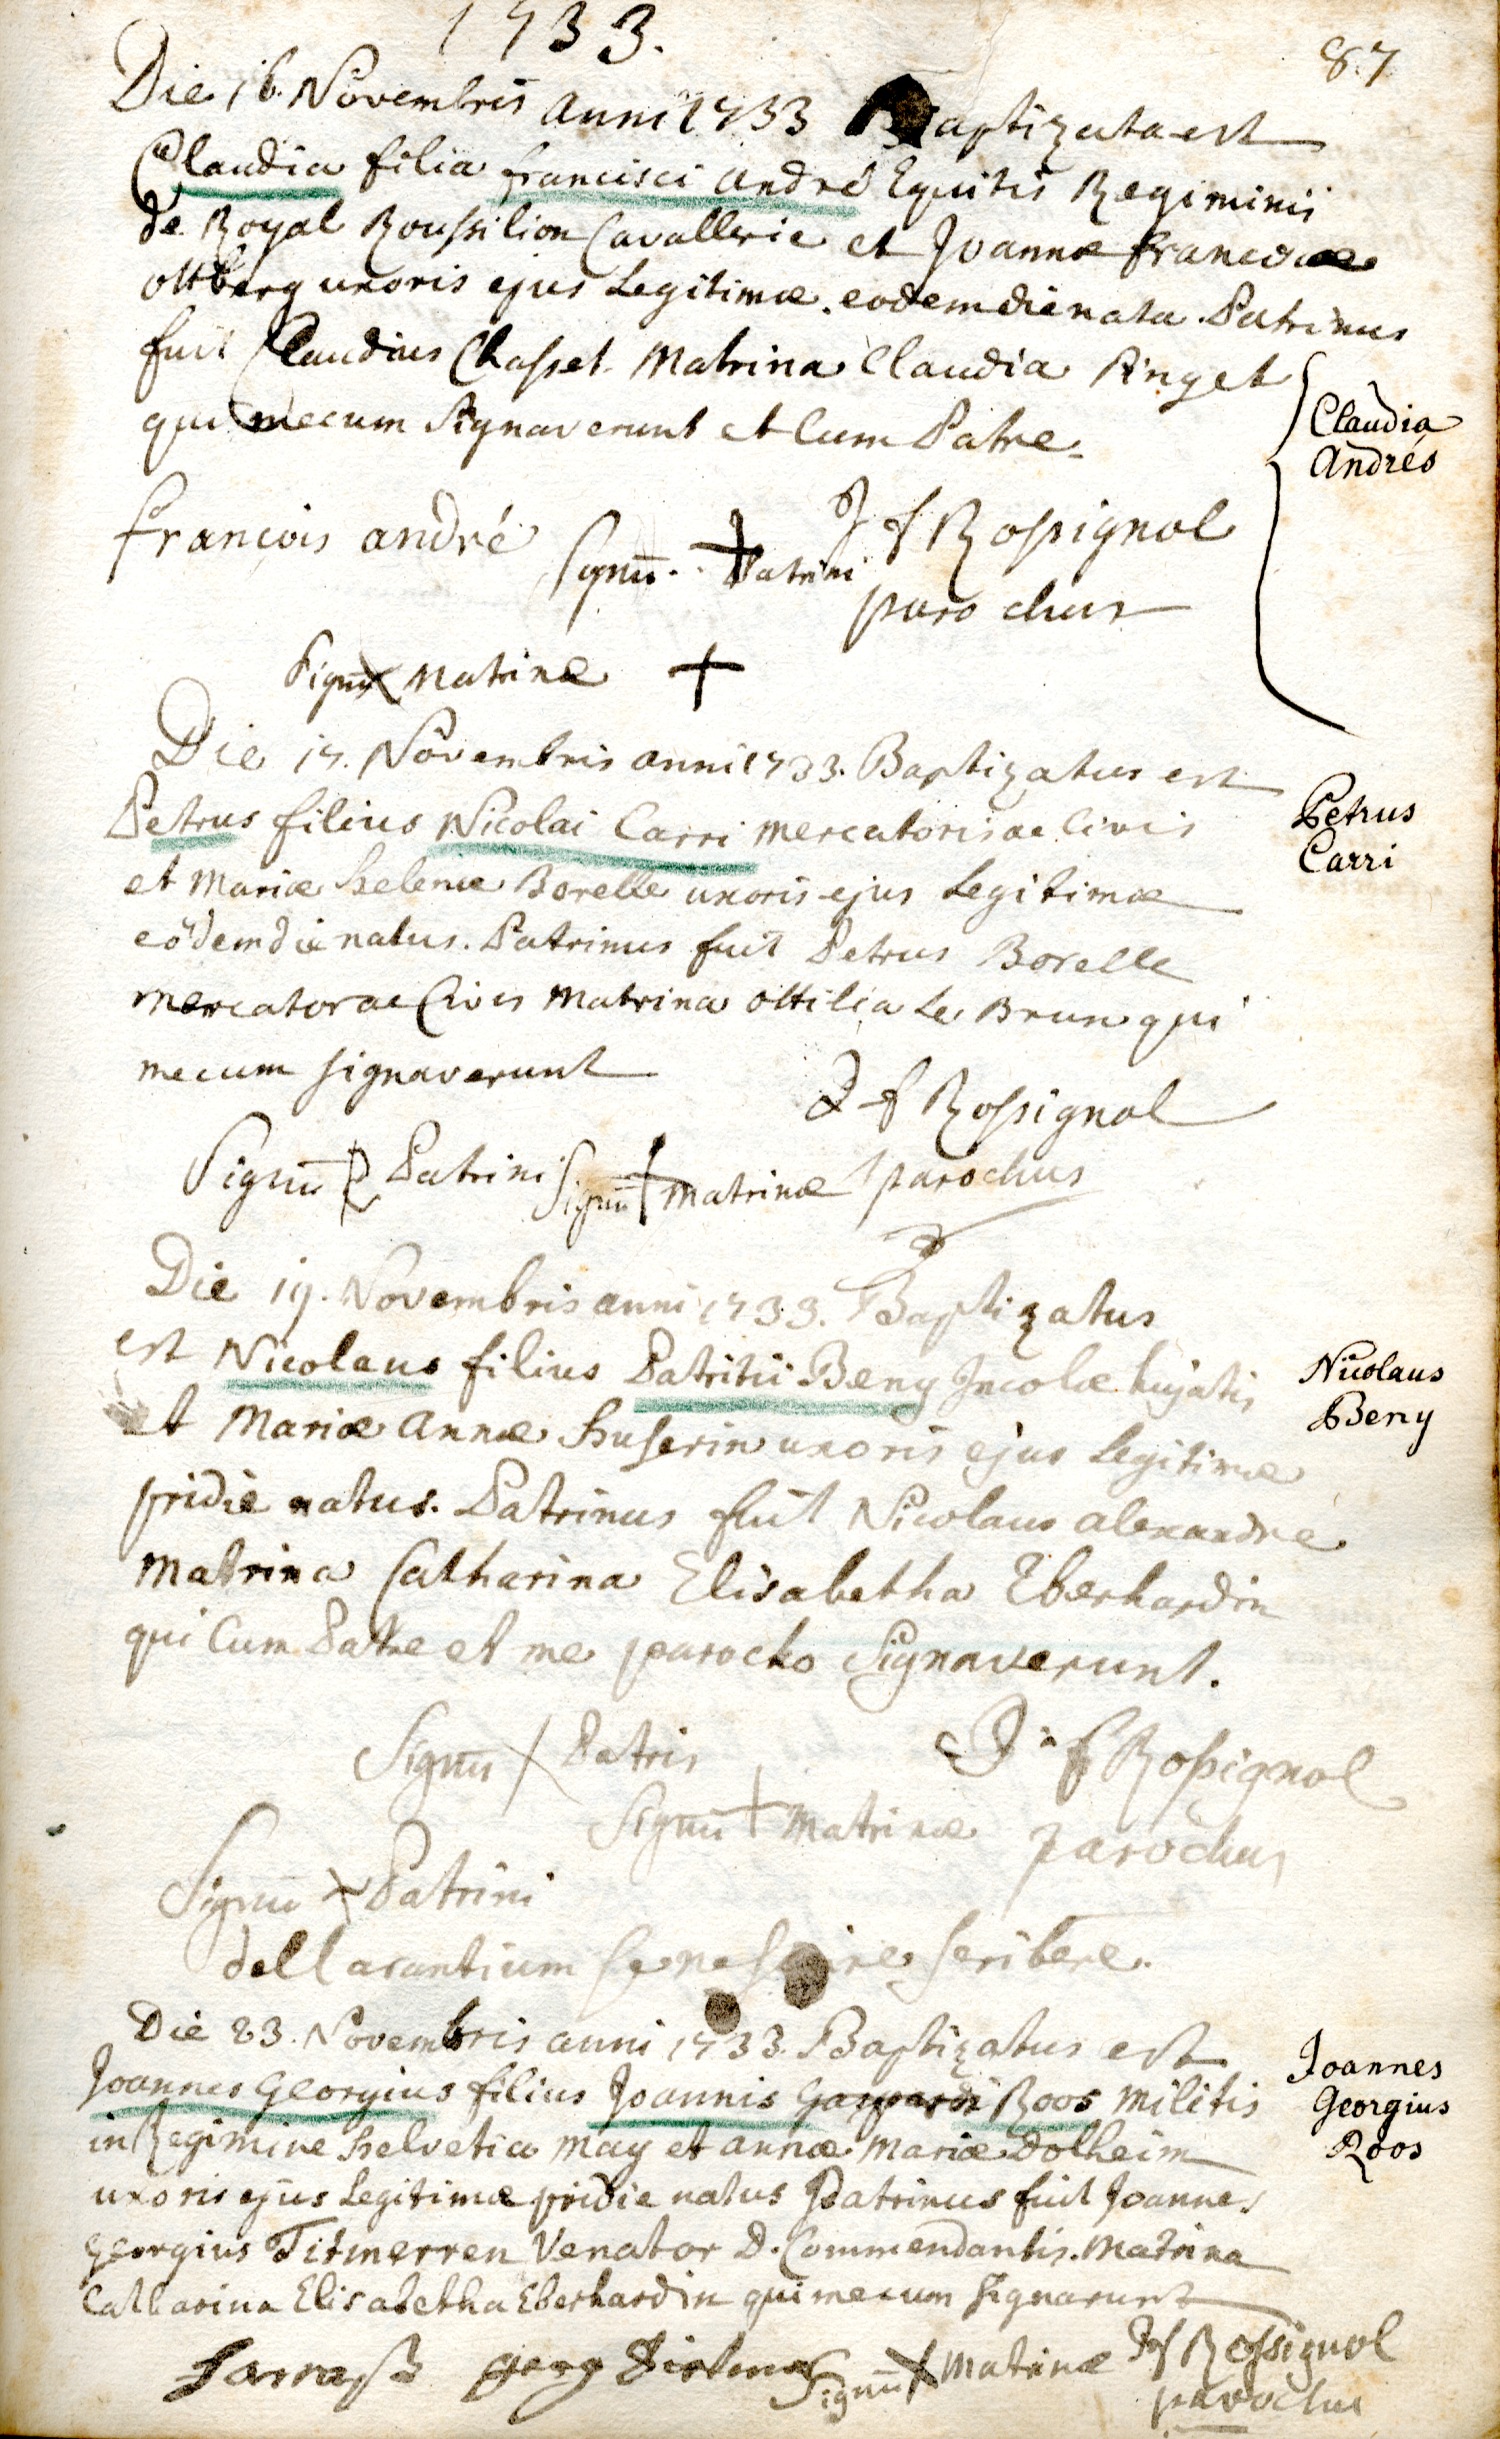 1733.
87
Die 16. Novembris anni 1733 Baptizata est
Claudia filia francisci andré Equitis Regiminis
de Royal Roussilion Cavallerie et Joannæ franciscæ
oltberg uxoris ejus Legitimæ. eodem die nata. Patrinus
fuit Claudius Chasset. Matrina Claudia Pinget
qui mecum signaverunt et Cum Patre.
Claudia
Andrés
françois andré
Signū. + Patrini
J f Rossignol
parochus
Signū Matrinæ +
Die 17. Novembris anni 1733. Baptizatus est
Petrus filius Nicolai Carri mercatoris ac Civis
et Mariæ helenæ Borelle uxoris ejus Legitimæ
eodem die natus. Patrinus fuit Petrus Borelle
mercator ac Civis Matrina ottilia Le Brun qui
mecum signaverunt
Petrus
Carri
J f Rossignol
parochus
Signū P Patrini Signū + Matrinæ
Die 19. Novembris anni 1733. Baptizatus
est Nicolaus filius Patritii Beny Incolæ hujatis
et Mariæ annæ huserin uxoris ejus Legitimæ
pridie natus. Patrinus fuit Nicolaus alexandre
Matrina Catharina Elisabetha Eberhardin
qui Cum Patre et me parocho signaverunt.
Nicolaus
Beny
Signū X Patris
J f Rossignol
parochus
Signū + Matrinæ
Signū X Patrini
dellarantium se nescire scribere.
Die 23. Novembris anni 1733. Baptizatus est
Joannes Georgius filius Joannis Gaspardi Roos Militis
in Regimine helvetico May et annæ Mariæ Dolheim
uxoris ejus Legitimæ pridie natus Patrinus fuit Joannes
georgius Titmerren Venator D. Commendantis. Matrina
Catharina Elisabetha Eberhardin qui mecum signarunt
Joannes
Georgius
Roos
georg
Signū X Matrinæ
J f Rossignol
parochus